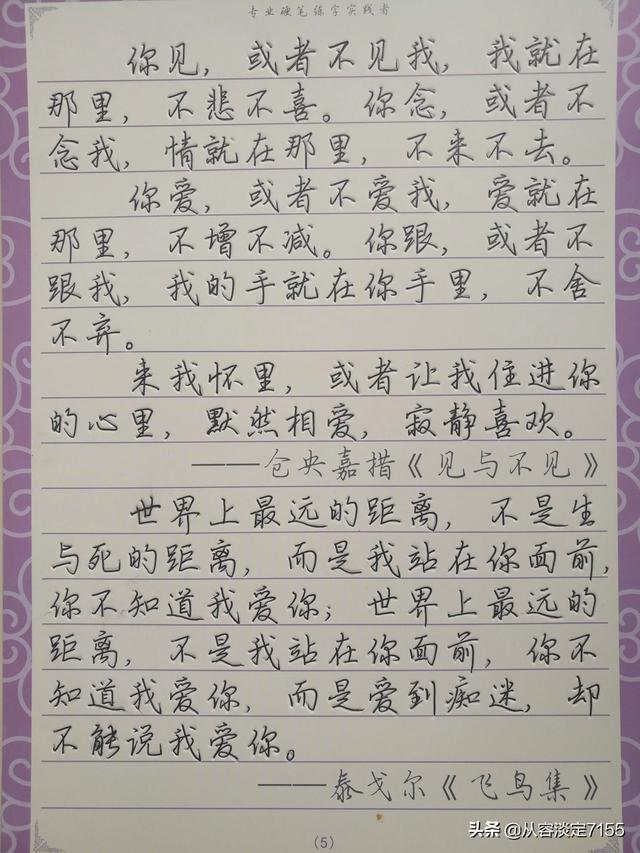 专业硬笔练字实践者
你见，或者不见我，我就在
那里，不悲不喜。你念，或者不
念我，情就在那里，不来不去。
你爱，或者不爱我，爱就在
那里，不增不减。你跟，或者不
跟我，我的手就在你手里，不舍
不弃。
来我怀里，或者让我住进你
的心里，默然相爱，寂静喜欢。
——仓央嘉措《见与不见》
世界上最远的距离，不是生
与死的距离，而是我站在你面前，
你不知道我爱你；世界上最远的
距离，不是我站在你面前，你不
知道我爱你，而是爱到痴迷，却
不能说我爱你。
——泰戈尔《飞鸟集》
(5)
头条 @从容淡定7155